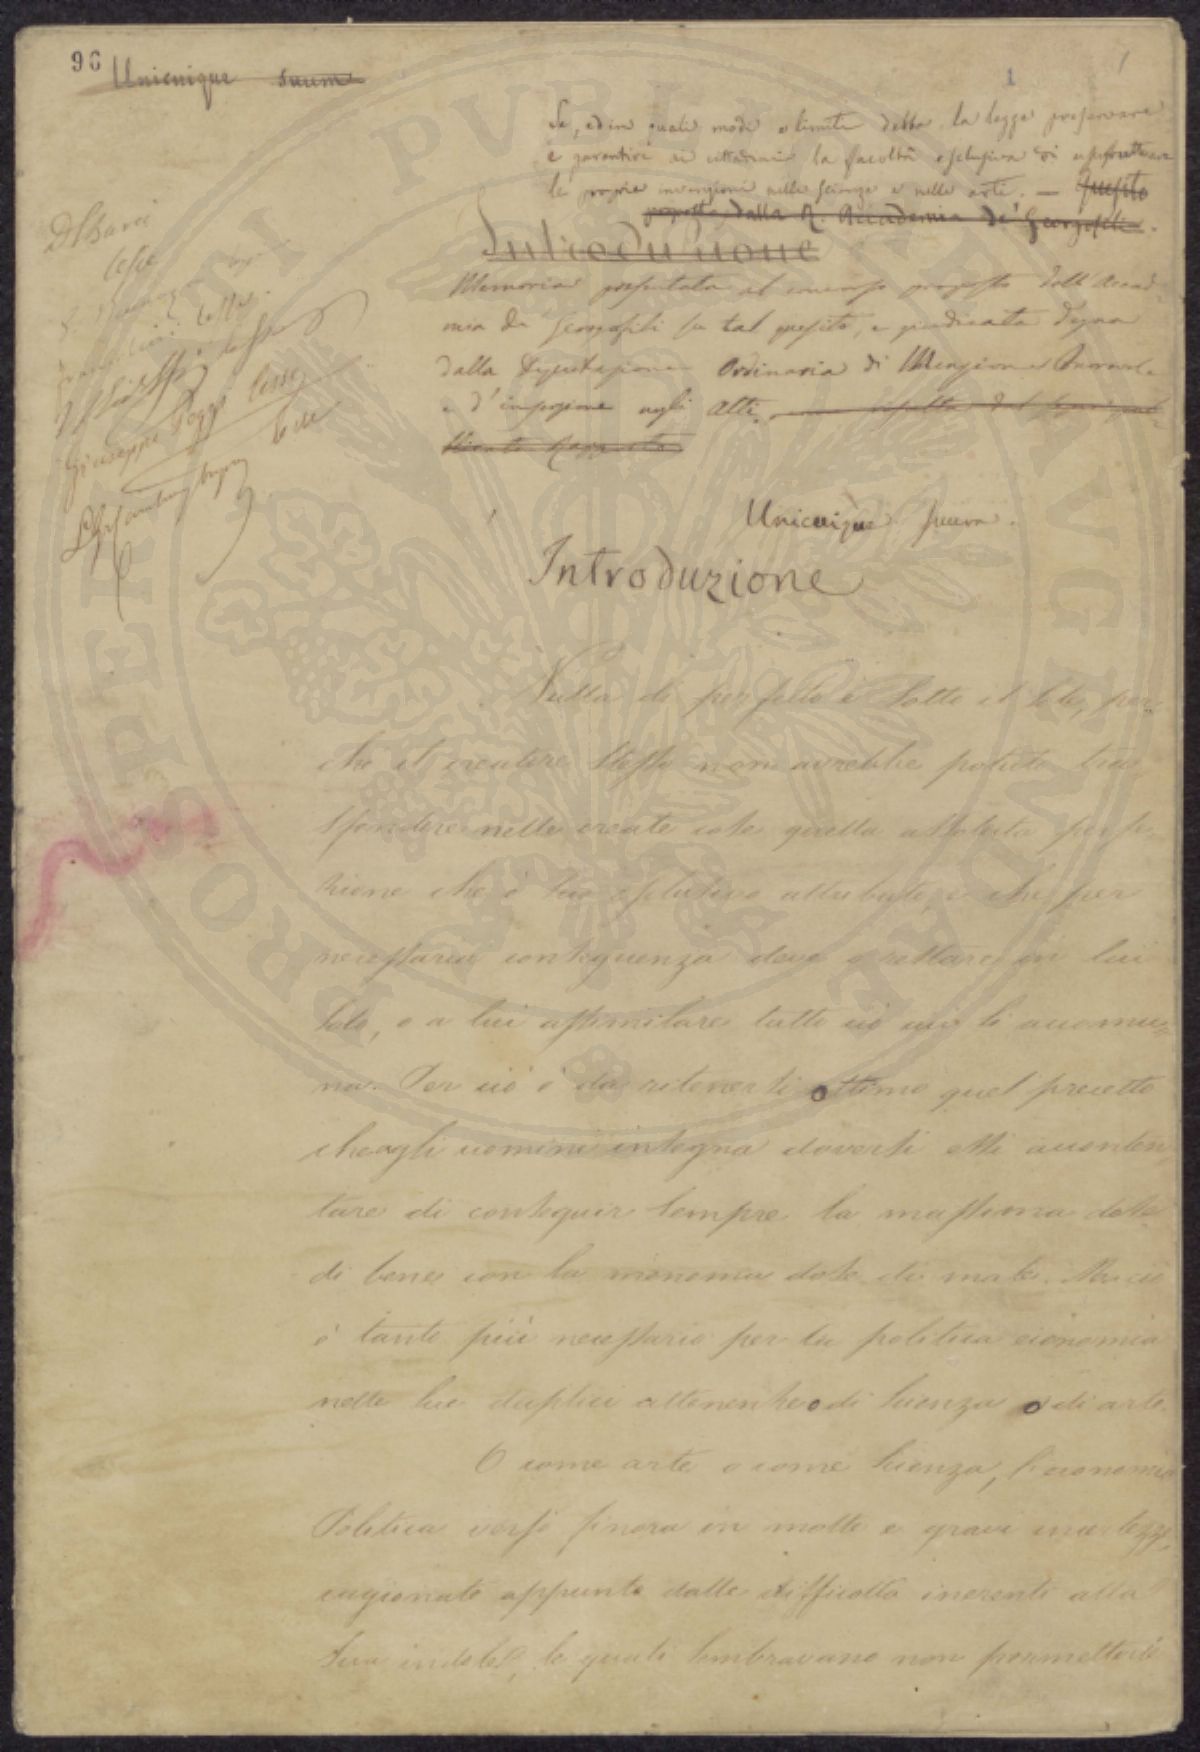 96
Unicuique suum
1
1
Se, ed in quali modi o limiti debba la legge preservare
e garantire ai cittadini la facoltà esclusiva di usufruttuare
le proprie invenzioni nelle scienze e nelle arti. — Quesito
proposto dalla R. Accademia de' Georgofili.
Introduzione
Memoria presentata al concorso proposto dall' Accade-
mia de Georgofili su tal quesito, e giudicata degna
dalla Deputazione Ordinaria di Menzione Onorevole
e d'inserzione negli Atti
Rapporto
Giuseppe Poggi lesse
Unicuique suum.
Introduzione
Nulla di perfetto è sotto il sole, per-
chè il creatore stesso non avrebbe potuto tra
sfondere nelle create cose quella assoluta perfe-
zione che è suo esclusivo attributo, e che per
necessaria conseguenza deve restare in lui
solo, o a lui assimilare tutto ciò cui si accomu-
na. Per ciò è da ritenersi ottimo quel precetto
che agli uomini insegna doversi essi acconten
tare di conseguir sempre la massima dose
di bene con la minima dose di male. Ma ciò
è tanto più necessario per la politica economia
nelle sue duplici attenenze o di scienza o di arte.
O come arte o come scienza, l'economia
Politica versò finora in molte e gravi incertezze,
cagionate appunto dalle difficoltà inerenti alla
sua indole, le quali sembravano non permetterle
PROSPERITATI PVBLICAE AVGENDAE